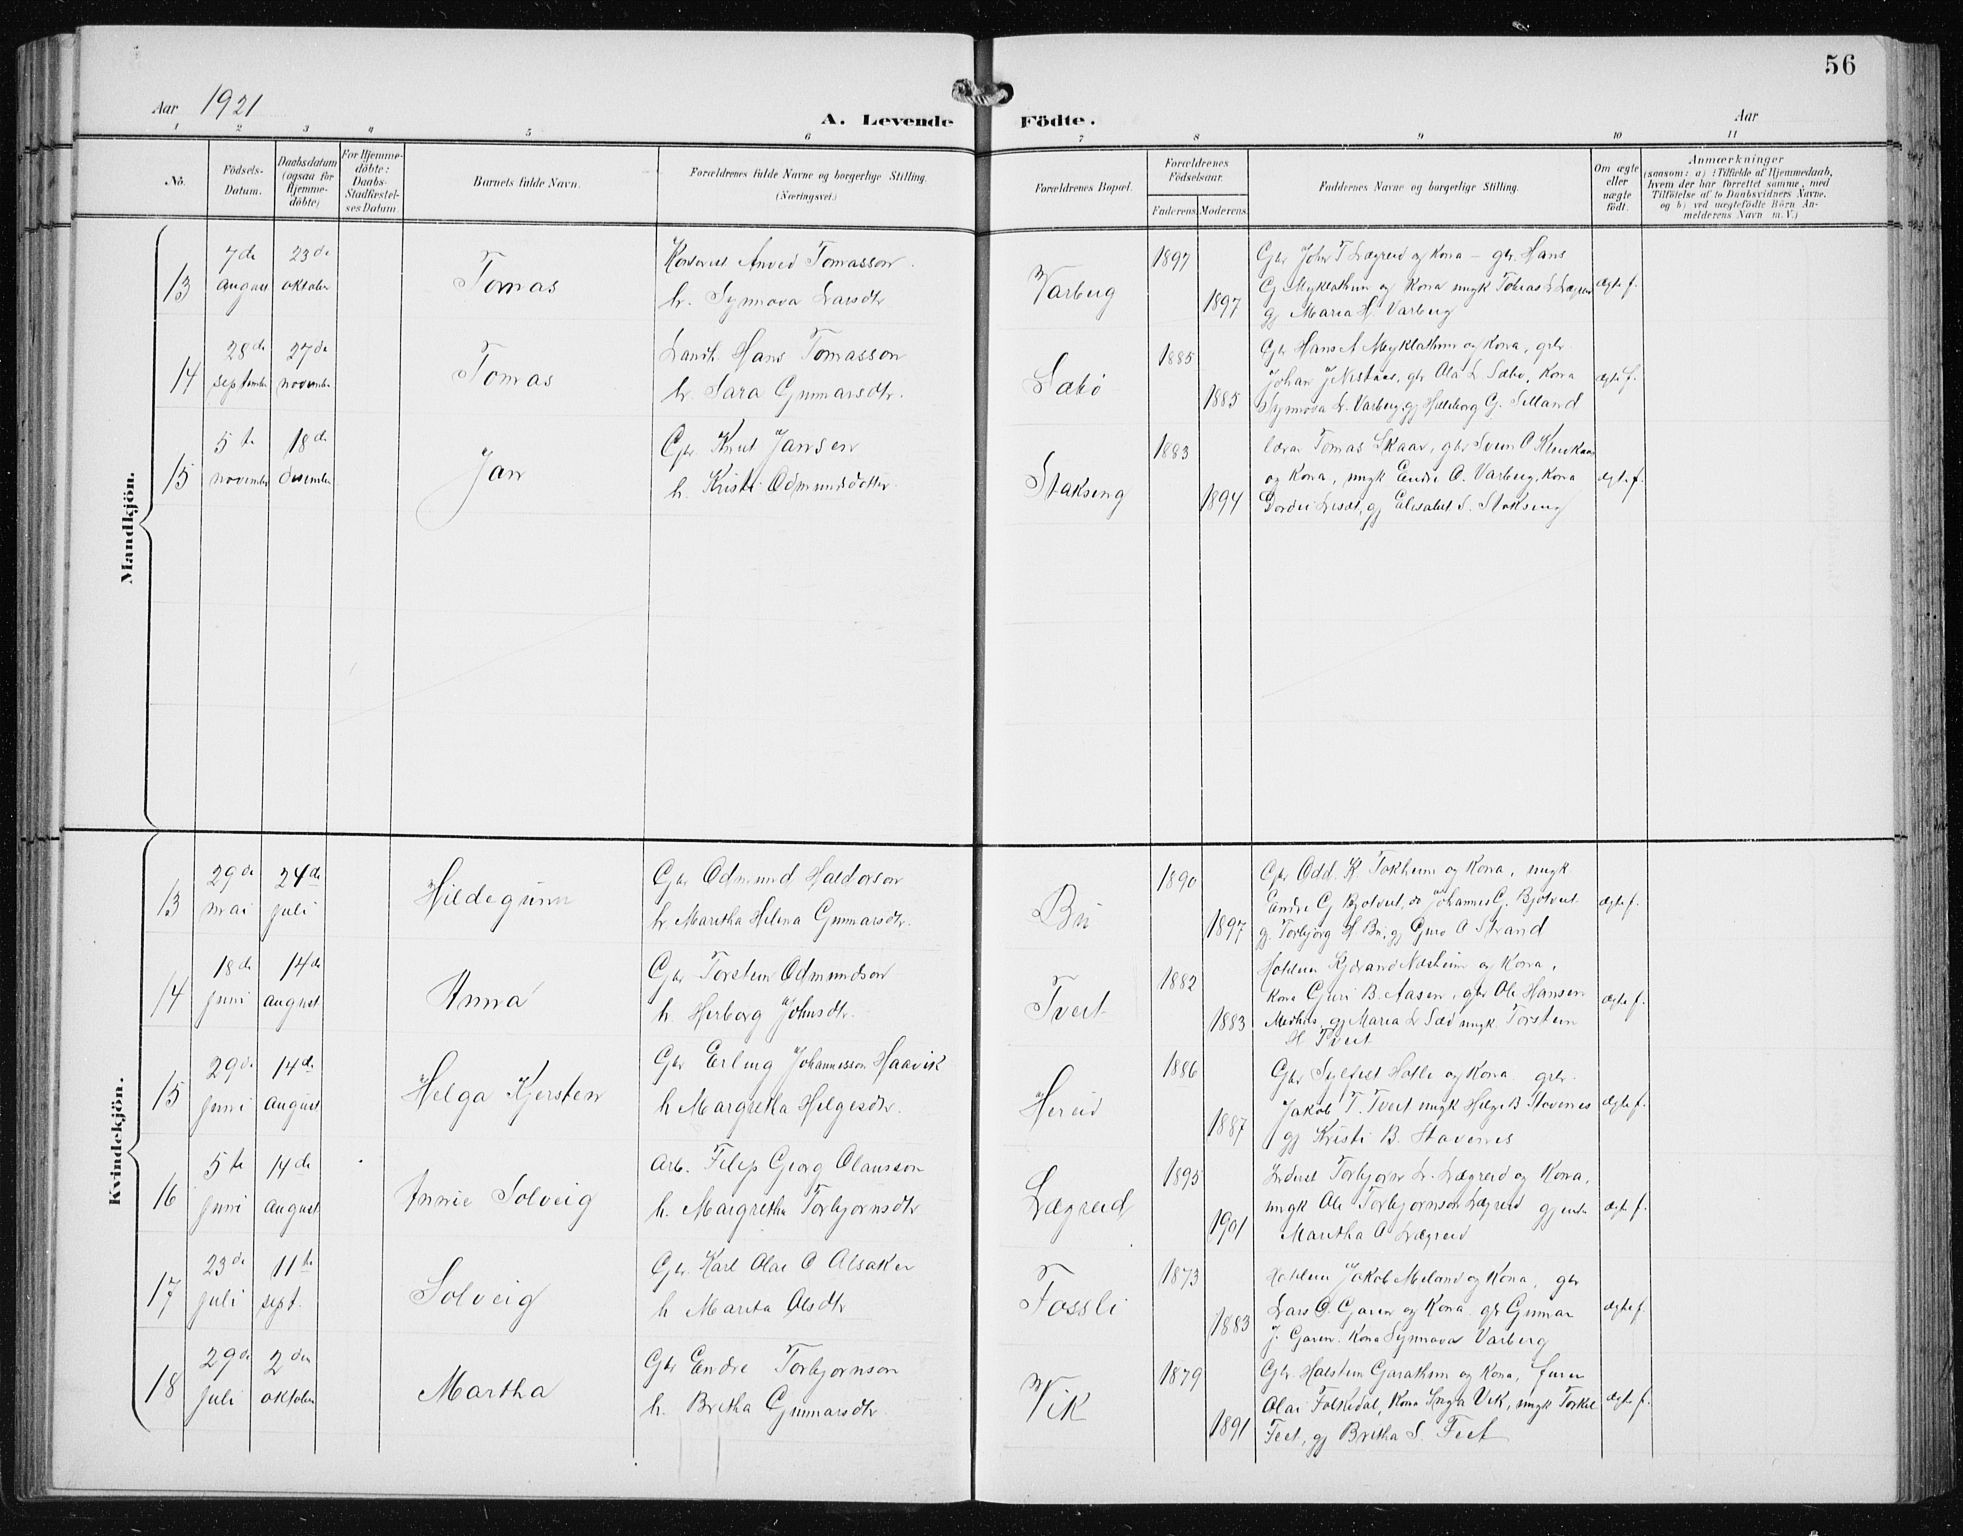 56
Aar 1921
A. Levende Födte.
Aar
1 2 3 4 5 6 7 8 9 10 11
No.
Födsels-Datum.
Daabsdatum (ogsaa for Hjemme-döbte)
For Hjemme-döbte: Daabs-Stadfestel-ses Datum
Barnets fulde Navn.
Forældrenes fulde Navne og borgerlige Stilling. (Næringsvei.)
Forældrenes Bopæl.
Forældrenes Födselsaar.
Faderens Moderens
Faddernes Navne og borgerlige Stilling.
Om ægte eller uægte födt.
Anmærkninger
(saasom: a) i Tilfælde af Hjemmedaab,
hvem der har forrettet samme, med
Tilföielse af to Daabsvidners Navne,
og b) ved uægtefödte Börn An-
melderens Navn m. V.)
Mandkjön.
13
7de august
23de oktober
Tomas
Anved Tomasson
h. Synnova Larsdtr
Varberg
1897
1897
Gbr John T Lægreid og Kona - gbr. Hans
G Myklathun og Kona ungk Tomas L Lægreid
gj Maria H. Varberg
ægte f.
14
28de september
27de november
Tomas
Landh. Hans Tomasson
h. Sara Gunnarsdtr.
Sæbö
1885
1885
Gbr Hans A Myklathun og Kona, gbr.
Johan J Nestaas, gbr Ola L Sæbo, Kona
Synnova L. Varberg, gj Hæleborg G. Silland
ægte f.
15
5te november
18de desember
Jan
Gbr. Knut Jansen
h. Kristi Odmundsdotter.
Stakseng
1883
1894
lærar Tomas Skaar, gbr Svein O
og Kona, ungk Endre O. Varberg, Kona
gj Elisabet S. Stokseng
ægte f.
Kvindekjön.
13
29de mai
24de juli
Hildegunn
Gbr Odmund Haldorson
h. Maretha Helena Gunnarsdtr.
Bu
1890
1897
Gbr Odd. K Tokheim og Kona, ungk
Endre G Bjotveit, do Johannes G. Bjotveit
g. Torbjorg H Bu, gj Guro O Strand
ægte f.
14
18de juni
14de august
Anna
Gbr Torstein Odmundson
h. Herborg Johnsdtr.
Tveit
1882
1883
Kjerand Næsheim og Kona,
Kona Guri B. Aasen, gbr Ole Hansen
gj Maria L Sæd ungk. Torstein
H Tveit
ægte f.
15
29de juni
14de august
Helga Kjersten
Gbr Erling Johannesson Haavik
h Margretha Helgesdtr.
Hereid
1886
1887
Gbr Sylfest Hölle og Kona gbr.
Jakob T. Tveit ungk Helge B Stavenes
gj Kristi B. Stavenes
ægte f.
16
5te juni
14de august
Annie Solveig
Arb. Filip Georg Olausson
h. Margretha Torbjornsdtr
Lægreid
1895
1901
Torbjorn L. Lægreid og Kona,
ungk Ole Torbjornson Lægreid gjenta
Maretha O Lægreid
ægte f.
17
23de juli
11te sept.
Solveig
Gbr. Karl Olai O Alsaker
h Marita Olsdtr
Fossli
1873
1883
Jakob Meland og Kona, gbr
Lars O. Garen og Kona gbr Gunnar
J. Garen. Kona Synnova Varberg
ægte f.
18
29de juli
2den oktober
Martha
Gbr Endre Torbjornson
h. Bretha Gunnarsdtr
Vik
1879
1891
Gbr. Halstein Garathun og Kona,
Olai Folkedal, Kona Inga Vik, ungk Torkel
Feet, gj Bretha S. Feet
ægte f.